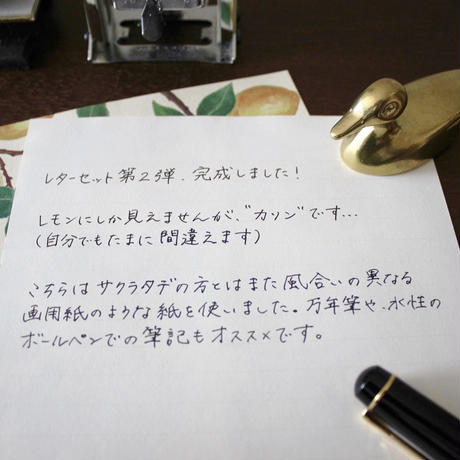 レターセット第2弾、完成しました!
レモンにしか見えませんが、"カリン"です...
(自分でもたまに間違えます)
こちらはサクラタデの方とはまた風合いの異なる
画用紙のような紙を使いました。万年筆や、水性の
ボールペンでの筆記もオススメです。